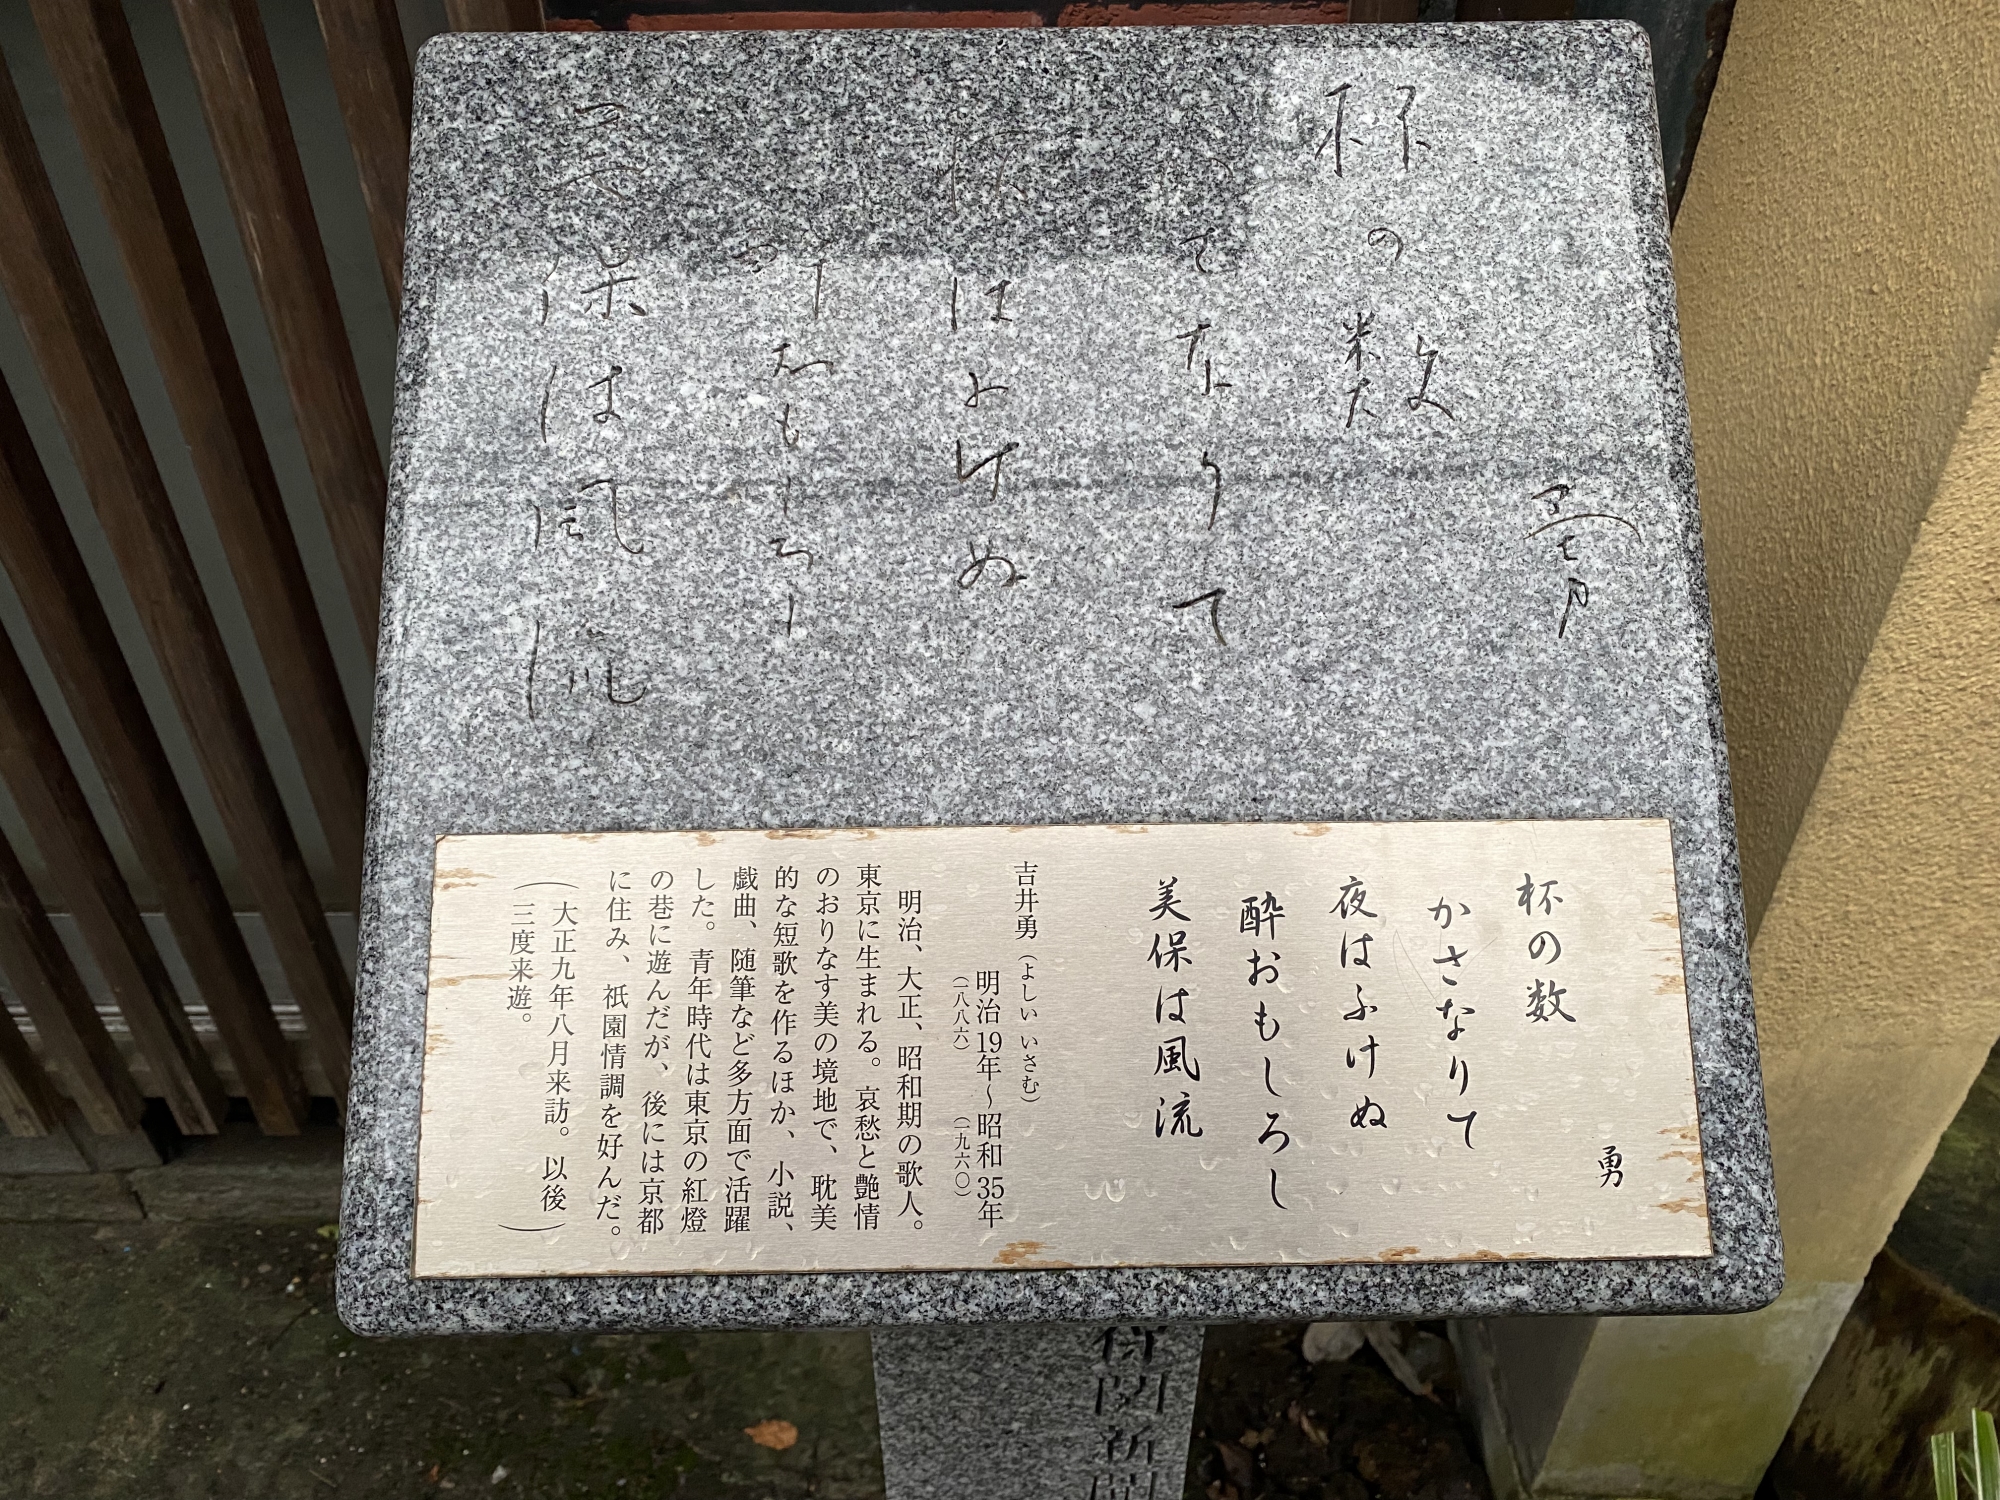 勇
杯の数
かさなりて
夜はふけぬ
酔おもしろし
美保は風流
勇
杯の数
かさなりて
夜はふけぬ
酔おもしろし
美保は風流
吉井勇（よしい いさむ）
明治19年～昭和35年
（一八八六）（一九六〇）
明治、大正、昭和期の歌人。
東京に生まれる。哀愁と艶情
のおりなす美の境地で、耽美
的な短歌を作るほか、小説、
戯曲、随筆など多方面で活躍
した。青年時代は東京の紅燈
の巷に遊んだが、後には京都
に住み、祇園情調を好んだ。
（大正九年八月来訪。以後
三度来遊。）